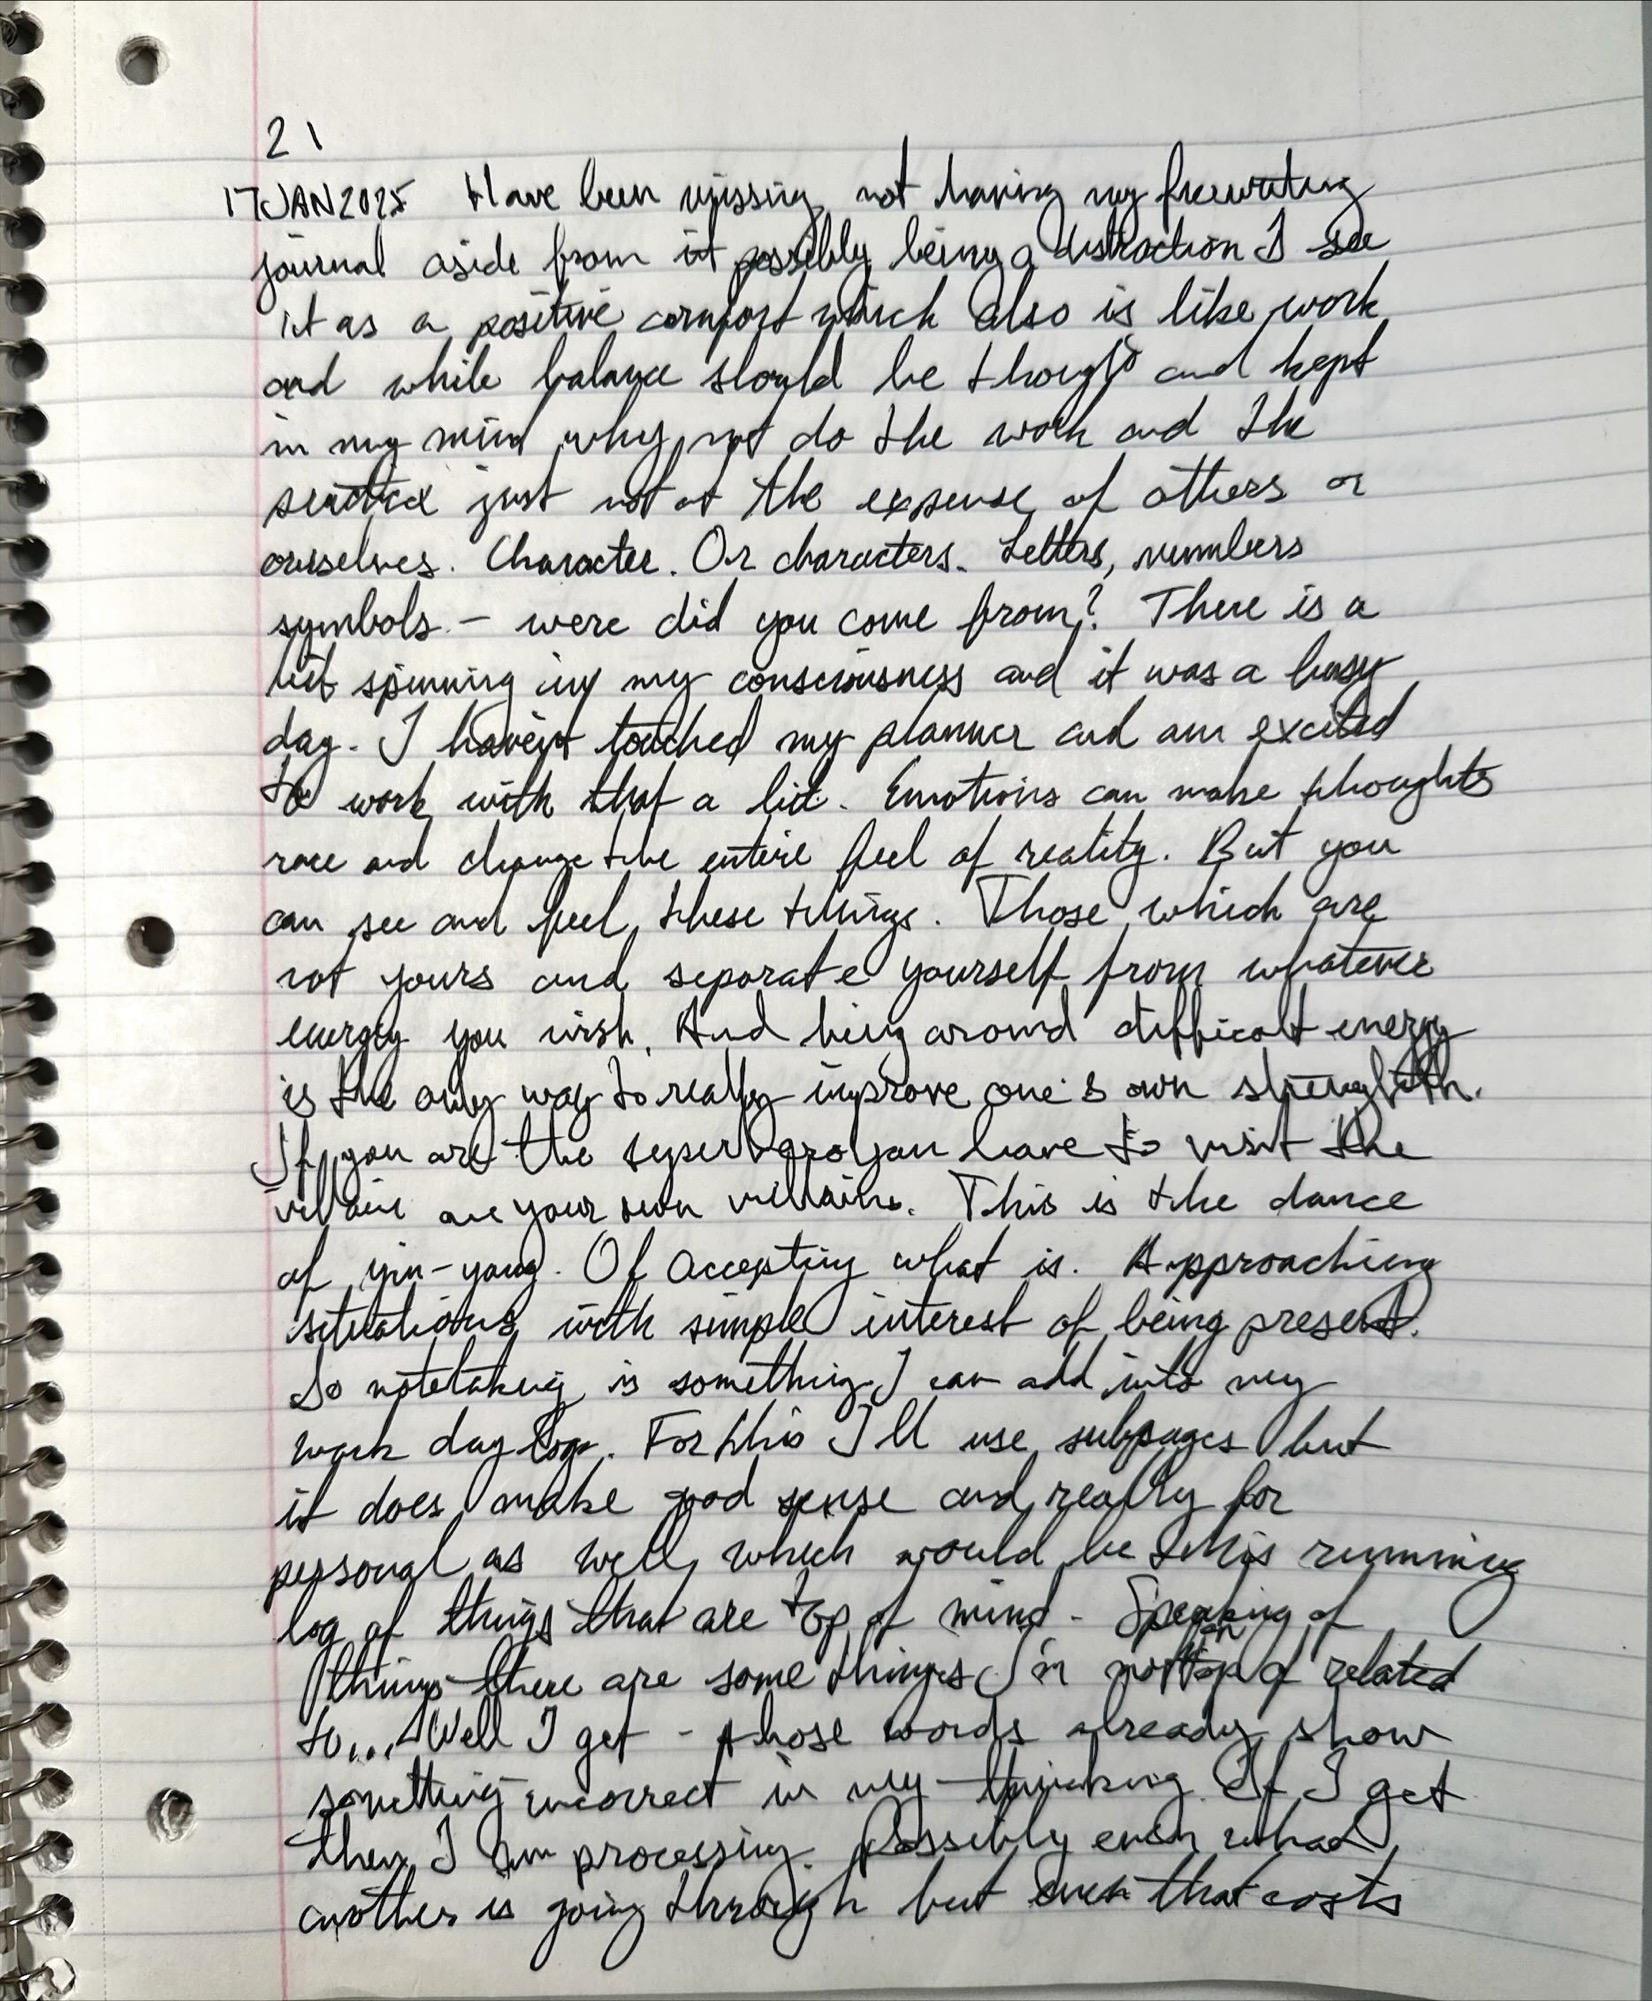 21
17JAN2025 Have been missing not having my freewriting
journal aside from it possibly being a distraction I see
it as a positive comfort which also is like work
and while balance should be thought and kept
in my mind why not do the work and the
just not at the expense of others or
ourselves. Character. Or characters. Letters, numbers
symbols - were did you come from? There is a
bit spinning in my consciousness and it was a busy
day. I haven't touched my planner and am excited
to work with that a bit. Emotions can make thoughts
race and change the entire feel of reality. But you
can see and feel these things. Those which are
not yours and separate yourself from whatever
energy you wish. And being around difficult energy
is the only way to really improve one's own strength.
If you are the superhero you have to visit the
villain are your own villain. This is the dance
of yin-yang. Of accepting what is. Approaching
situations with simple interest of being present.
So notetaking is something I can add into my
work day log. For this I'll use subpages but
it does make good sense and really for
personal as well which would be this running
log of things that are top of mind - Speaking of
things there are some things I'm related
to... Well I get - those words already show
something incorrect in my thinking. If I get
then I am processing. Possibly even what
another is going through but even that costs